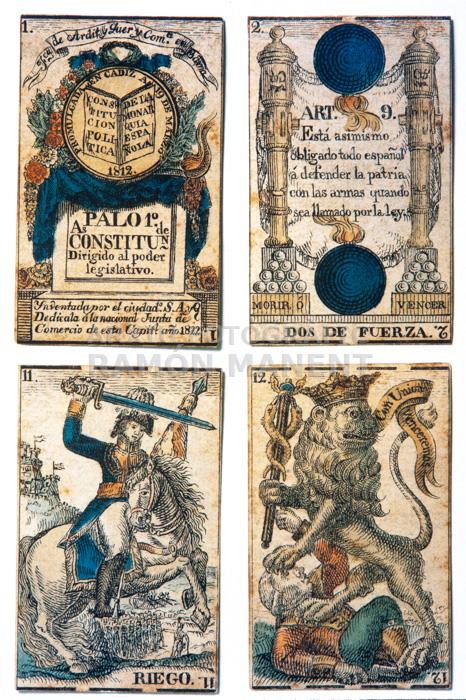 1.
de Ardit y Quer y Com.ª en Barna
PROMULGADA EN CADIZ A 19 DE MARZO
CONS DE LA
TITU MONAR
CION QUIA
POLI ESPA
TICA ÑOLA
1812.
PALO 1º.
As de
CONSTITUN
Dirigido al poder
legislativo.
Ynventada por el ciudadº. S. A. y Q
Dedicala á la nacional Junta de
Comercio de esta Capitl. año 1822
1
2.
ART. 9.
Está asimismo
obligado todo español
á defender la patria
con las armas quando
sea llamado por la ley.
MORIR Ó VENCER
DOS DE FUERZA. 2
FOTOGRAFIA
RAMÓN MANENT
11.
RIEGO. 11
12.
Con Union
venceremos
12